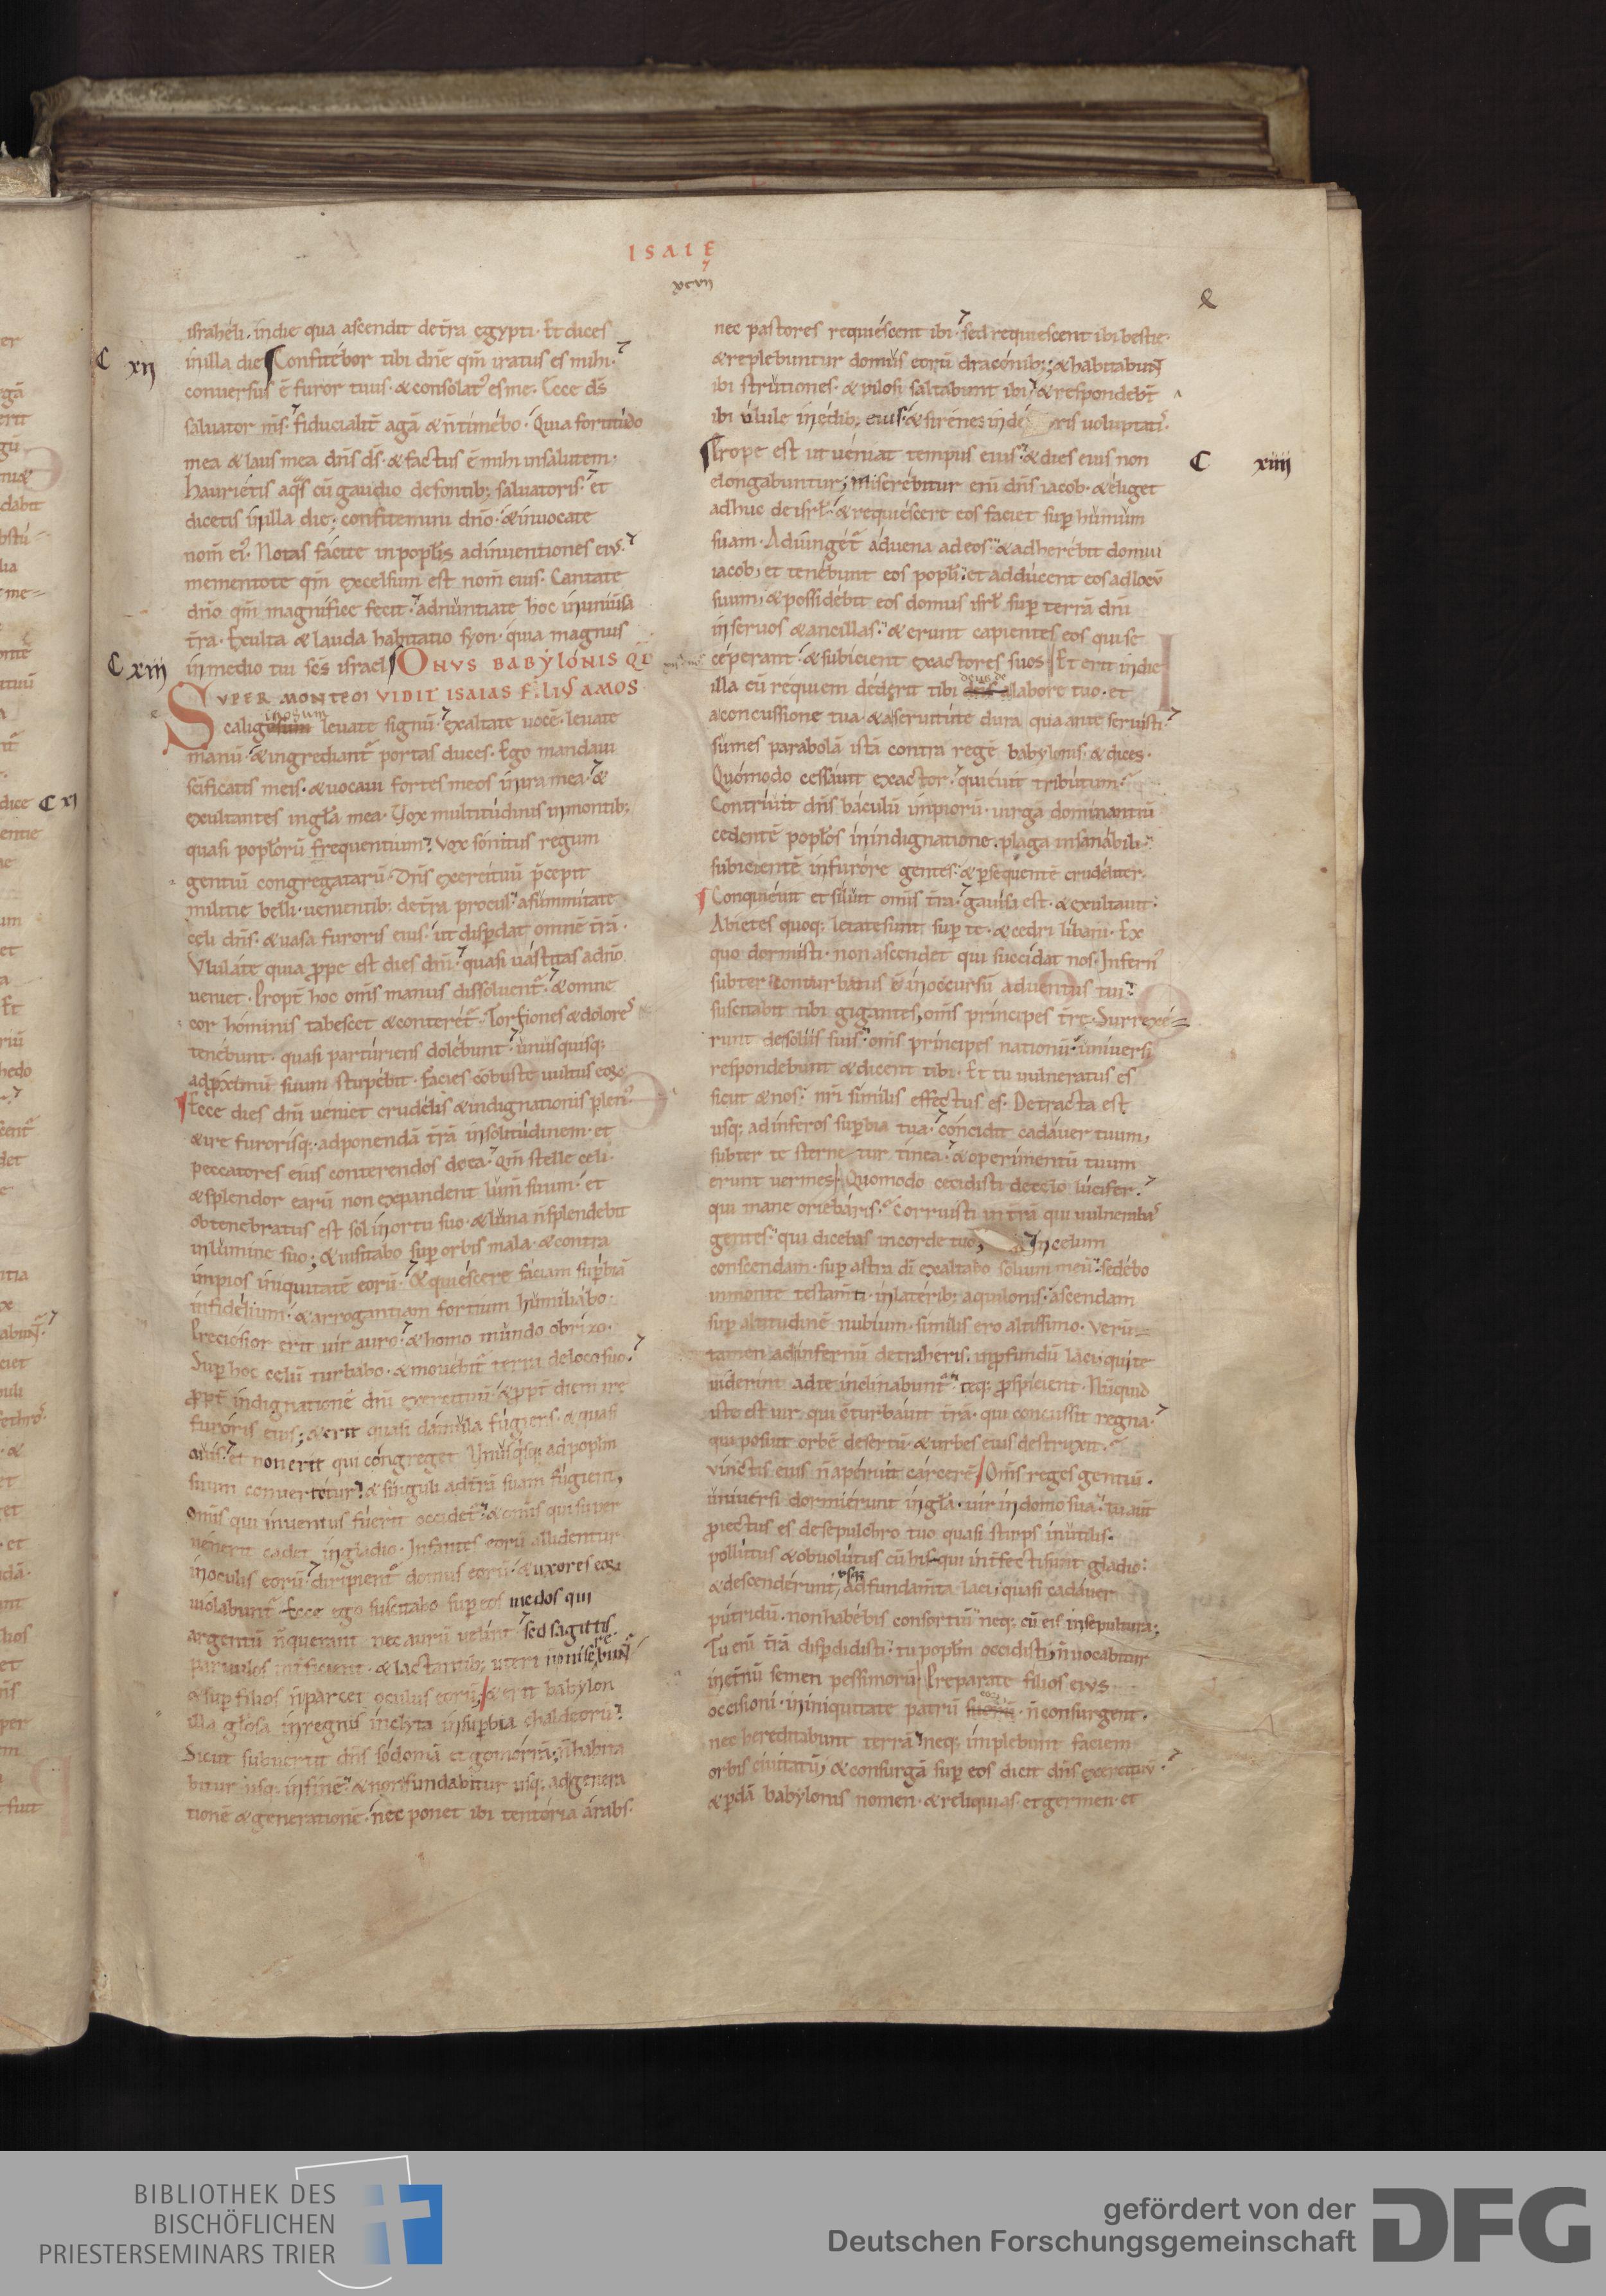 ISAIE
xcvii
israheli. indie qua ascendit det̄ra egypti. Et dices
C xii
inilla die Confitebor tibi dn̄e qm̄ iratus es mihi.
conversus ē furor tuus. & consolat᾽ es me. Ecce ds̄
salvator m̄s. fiducialit̄ agā & n̄ timebo. Quia fortitudo
mea & laus mea dn̄s ds̄. & factus ē mihi insalutem.
haurietis aq̄s cū gaudio de fontib; salvatoris. et
dicetis inilla die; confitemini dn̄o. & invocate
nom̄ ei᾽. Notas facite inpopl̄is adinventiones ei᾽.
mementote qm̄ excelsum est nom̄ eius. Cantate
dn̄o qm̄ magnifice fecit. adnuntiate hoc inuniūsa
t̄ra. Exulta & lauda habitatio syon. quia magnus
C xiii
inmedio tui sc̄s israel ONVS BABYLONIS QD̄
SVPER MONTEM VIDIT ISAIAS FILIVS AMOS
caligosum levate signū. exaltate vocē. levate
manū. & ingrediant̄ portas duces. Ego mandavi
sc̄ificatis meis. & vocavi fortes meos inira mea. &
exultantes ingl̄a mea. Vox multitudinis inmontib;
quasi popl̄orū frequentium. vox sonitus regum
gentiū congregatarū. Dn̄s exercituū p̄cepit
militie belli. venientib; det̄ra procul. asummitate
celi dn̄s. & vasa furoris eius. ut disp̄dat omnē t̄rā.
Vlulate quia ꝓpe est dies dn̄i. quasi vastitas adn̄o
veniet. Propt̄ hoc om̄s manus dissolvent̄. & omne
cor hominis tabescet & conteret̄. Torsiones & dolores
tenebunt. quasi parturiens dolebunt. unusquisq;
adꝓximū suum stupebit. facies cōbuste vultus eoꝝ
Ecce dies dn̄i veniet crudelis & indignationis plen᾽
& ire furorisq;. adponendā t̄rā insolitudinem. et
peccatores eius conterendos deea. qm̄ stelle celi.
& splendor earū non expandent lum̄ suum. et
obtenebratus est sol inortu suo. & luna n̄ splendebit
inlumine suo; & visitabo sup̄ orbis mala. & contra
impios iniquitatē eorū. & quiescere faciam sup̄biā
infidelium. & arrogantiam fortium humiliabo.
Preciosior erit vir auro. & homo mundo obrizo.
Sup̄ hoc celū turbabo. & movebit̄ terra deloco suo.
ꝓpt̄ indignationē dn̄i exercituū. & ꝓpt̄ diem ire
furoris eius; & erit quasi damula fugiens. & quasi
ovis. et non erit qui congreget. Vnusq̄sq; ad popl̄m
suum convertetur. & singuli adt̄rā suam fugient;
Omīs qui inventus fuerit occidet̄. & om̄s qui super
venerit cadet ingladio. Infantes eorū allidentur
inoculis eorū. diripient̄ domus eorū. & uxores eoꝝ
violabunt̄. Ecce ego suscitabo sup̄ eos medos qui
argentū n̄ querant nec aurū velint. sed sagittis
parvulos int̄ficient. & lactantib; uteri n̄ miserebunt̄
& sup̄ filios n̄ parcet oculus eorū; & erit babylon
illa gl̄osa inregnis inclyta insup̄bia chaldeorū.
Sicut subvertit dn̄s sodomā et gomorrā; n̄ habita
bitur usq; infinē. & non fundabitur usq; adgenera
tionē & generationē. nec ponet ibi tentoria arabs.
nec pastores requiescent ibi. sed requiescent ibi bestie.
& replebuntur domus eorū draconib;; & habitabunt
ibi strutiones. & pilosi saltabunt ibi. & respondebt̄
ibi ulule inedib; eius. & sirenes in de ris voluptatis.
C xiiii
Prope est ut veniat tempus eius. & dies eius non
elongabuntur; miserebitur enī dn̄s iacob. & eliget
adhuc de isrl̄. & requiescere eos faciet sup̄ humum
suam. Adiunget̄ advena ad eos. & adherebit domui
iacob; et tenebunt eos popl̄i. et adducent eos ad locū
suum; & possidebit eos domus isrl̄ sup̄ terrā dn̄i
inservos & ancillas. & erunt capientes eos qui se
ceperant. & subicient exactores suos Et erit indie
illa cū requiem dederit tibi deus de labore tuo. et
aconcussione tua. & aservitute dura qua ante servisti.
sumes parabolā istā contra regē babylonis. & dices.
Quomodo cessavit exactor. quievit tributum.
Contrivit dn̄s baculū impiorū. virgā dominantiū
cedentē popl̄os inindignatione. plaga insanabili.
subicientē infurore gentes. & p̄sequentē crudeliter.
Conquievit et siluit omīs t̄ra. gavisa est. & exultavit.
Abietes quoq; letate sunt sup̄ te. & cedri libani. Ex
quo dormisti. non ascendet qui succidat nos. Infern᾽
subter conturbatus ē inoccursū adventus tui.
suscitabit tibi gigantes; om̄s principes t̄re. Surrexe=
runt desoliis suis. om̄s principes nationū. universi
respondebunt & dicent tibi. Et tu vulneratus es
sicut & nos. nr̄i similis effectus es. Detracta est
usq; ad inferos sup̄bia tua. concidit cadaver tuum;
subter te sternetur tinea. & operimentū tuum
erunt vermes. Quomodo cecidisti decelo lucifer.
qui mane oriebaris. Corruisti int̄rā qui vulnerabas
gentes. qui dicebas incorde tuo; In celum
conscendam. sup̄ astra dī exaltabo solium meū. sedebo
inmonte testam̄ti. inlaterib; aquilonis. ascendam
sup̄ altitudinē nubium. similis ero altissimo. Verū=
tamen ad infernū detraheris. inꝓfundū laci; qui te
viderint ad te inclinabunt̄. teq; ꝓspicient. Nūquid
iste est vir. qui cōturbavit t̄rā. qui concussit regna.
qui posuit orbē desertū. & urbes eius destruxit.
vinctis eius n̄ aperuit carcerē Om̄s reges gentiū.
universi dormierunt ingl̄a. vir indomo sua. tu aūt
ꝓiectus es desepulchro tuo quasi stirps inutilis.
pollutus & obvolutus cū his qui int̄fecti sunt gladio.
& descenderunt; usq; ad fundam̄ta laci; quasi cadaver
putridū. non habebis consortiū neq; cū eis insepultura;
Tu enī t̄rā disp̄didisti. tu popl̄m occidisti; n̄ vocabitur
inet̄nū semen pessimorū. Preparate filios eius
occisioni. ininiquitate patrū eoꝝ. n̄ consurgent.
nec hereditabunt terrā. neq; implebunt faciem
orbis civitatū; & consurgā sup̄ eos dicit dn̄s exercituū.
& p̄dā babylonis nomen. & reliquias. et germen. et
C xi
BIBLIOTHEK DES
BISCHÖFLICHEN
PRIESTERSEMINARS TRIER
gefördert von der
Deutschen Forschungsgemeinschaft
DFG